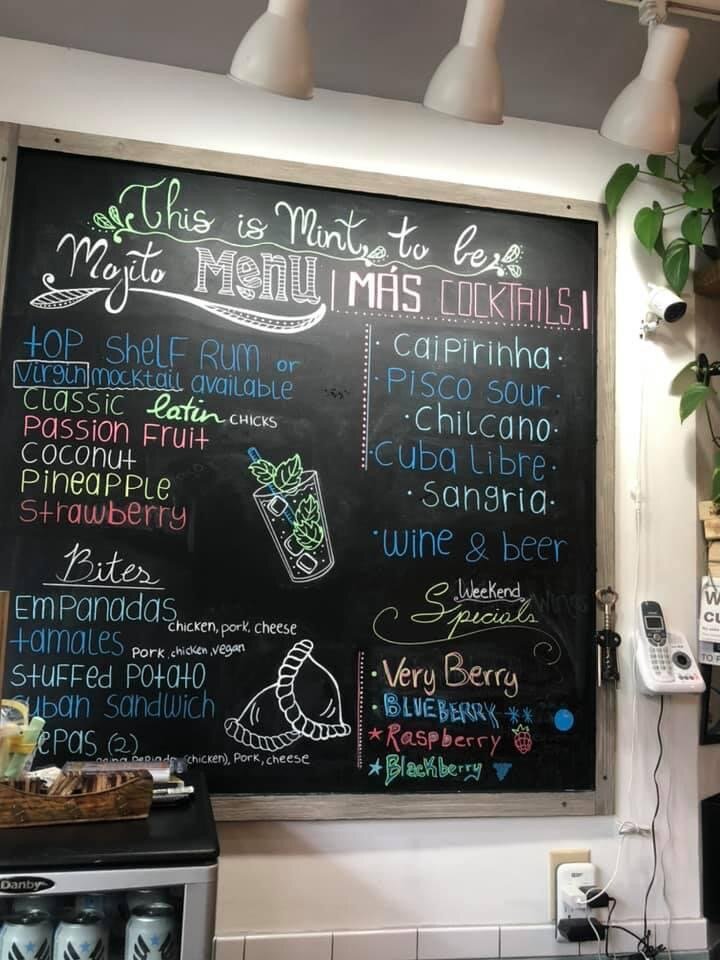 This is Mint to be
Mojito Menu
top Shelf Rum or
virgin mocktail available
Classic latin CHICKS
Passion Fruit
Coconut
Pineapple
Strawberry
Bites
Empanadas
chicken, pork, cheese
tamales Pork, chicken, vegan
Stuffed Potato
Cuban Sandwich
epas (2)
(chicken), Pork, cheese
| MÁS COCKTAILS |
· Caipirinha ·
· Pisco sour ·
· Chilcano ·
· Cuba libre ·
· Sangria ·
· wine & beer
Weekend
Specials
· Very Berry
· BLUEBERRY
Raspberry
Blackberry
Danby